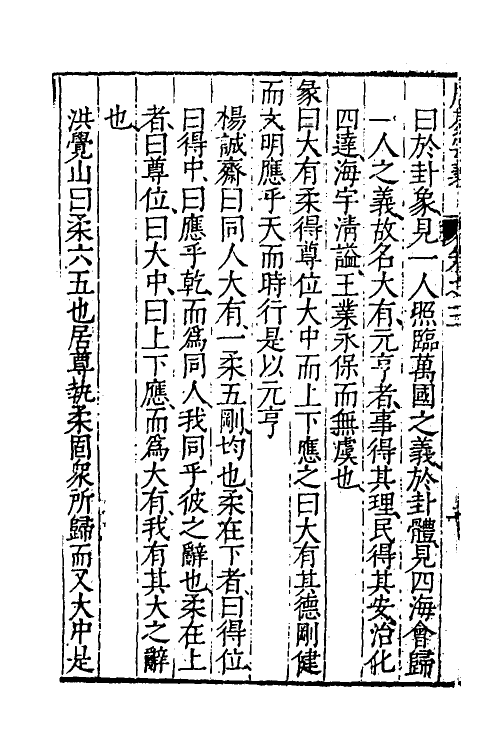 曰於卦象見一人照臨萬國之義於卦體見四海會歸
一人之義故名大有元亨者事得其理民得其安治化
四達海宇清謐王業永保而無虞也
彖曰大有柔得尊位大中而上下應之曰大有其德剛健
而文明應乎天而時行是以元亨
楊誠齋曰同人大有一柔五剛均也柔在下者曰得位
曰得中曰應乎乾而爲同人我同乎彼之辭也柔在上
者曰尊位曰大中曰上下應而爲大有我有其大之辭
也
洪覺山曰柔六五也居尊執柔固衆所歸而又大中是